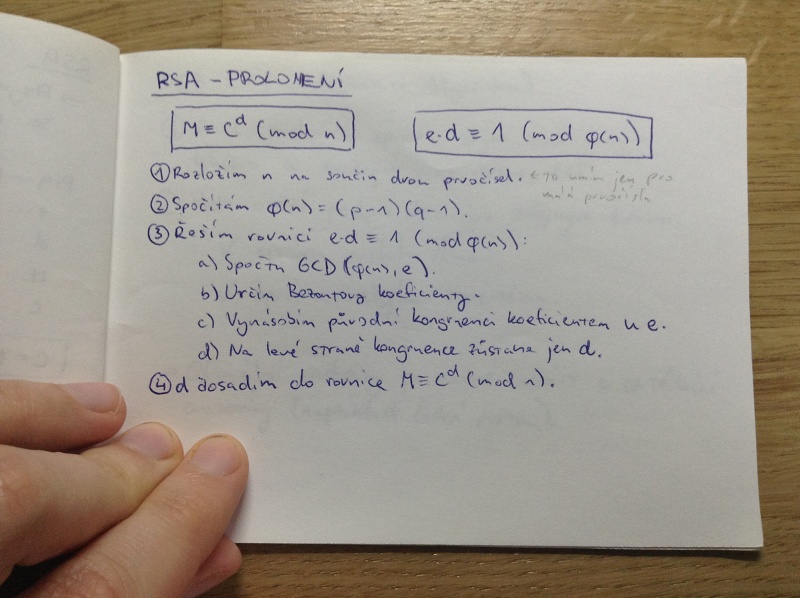 RSA - PROLOMENÍ
M ≡ C^d (mod n)
e·d ≡ 1 (mod φ(n))
① Rozložím n na součin dvou prvočísel. ← to umím jen pro
malá prvočísla
② Spočítám φ(n) = (p-1)(q-1).
③ Řeším rovnici e·d ≡ 1 (mod φ(n)):
a) Spočtu GCD(φ(n), e).
b) Určím Bezoutovy koeficienty.
c) Vynásobím původní kongruenci koeficientem u e.
d) Na levé straně kongruence zůstane jen d.
④ d dosadím do rovnice M ≡ C^d (mod n).